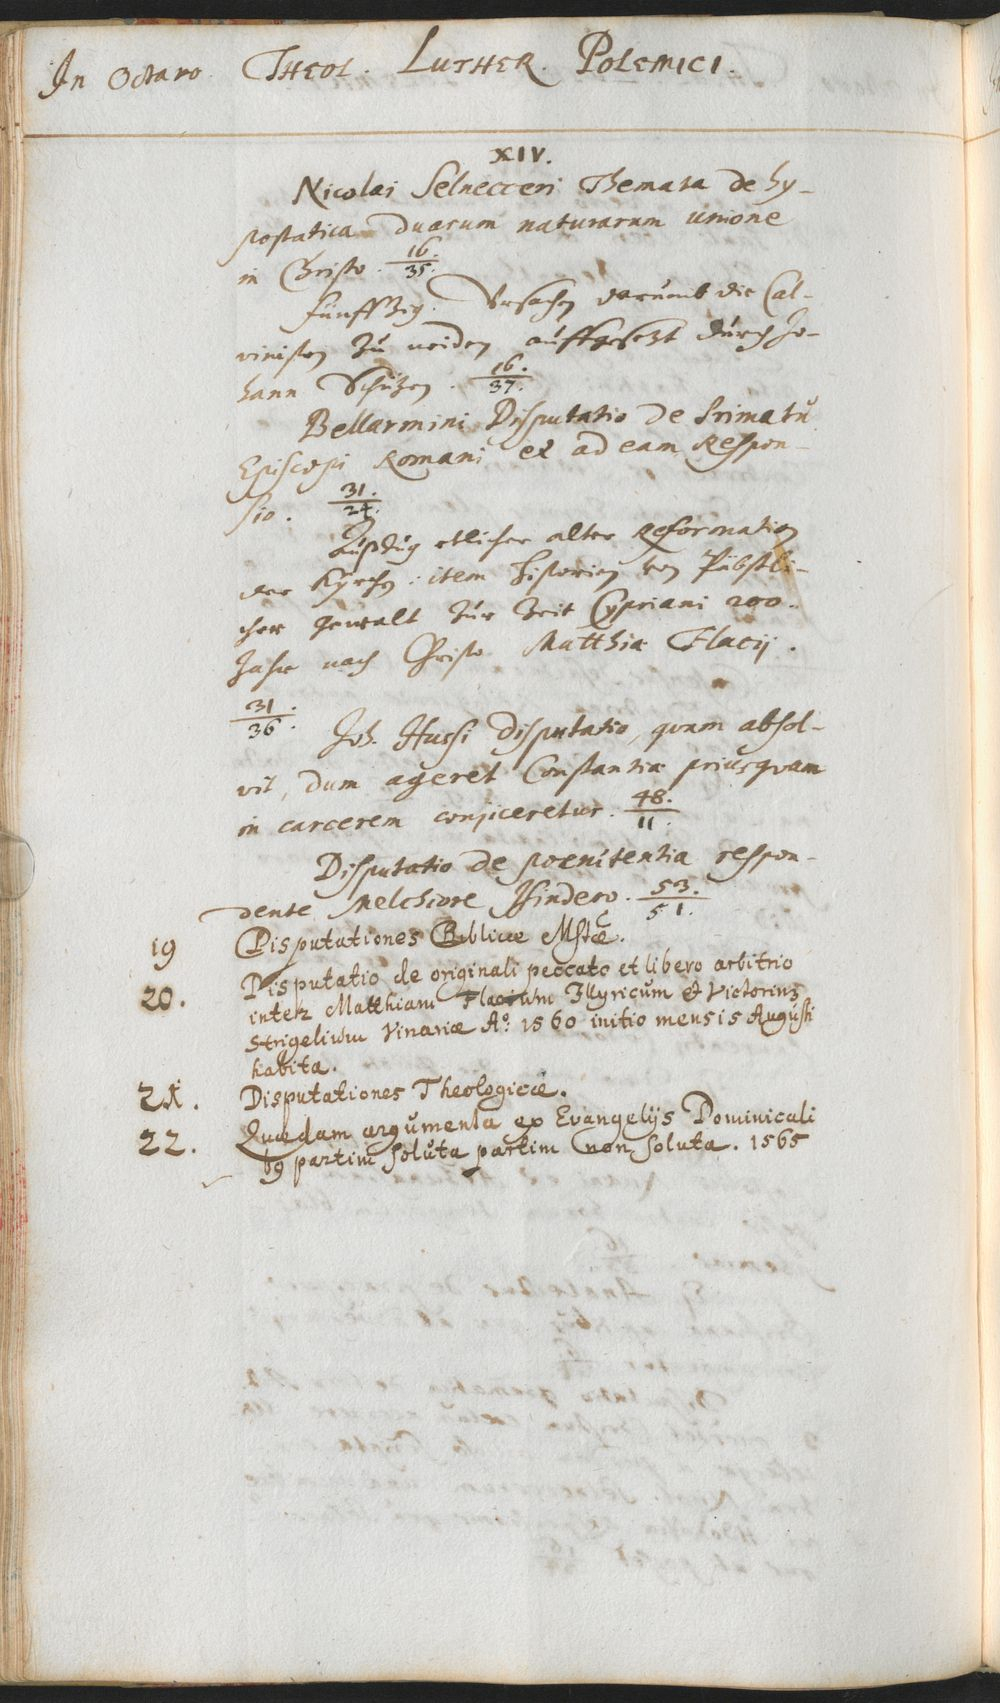 In Octavo. THEOL. LUTHER. POLEMICI.
XIV.
Nicolai Selnecceri Themata de hy-
postatica duarum naturarum unione
in Christo. 16./35.
Fünffzig Ursachen darumb die Cal-
vinisten zu meiden auffgesetzt durch Jo-
hann Schützen. 16./37.
Bellarmini Disputatio de Primatu
Episcopi Romani et ad eam Respon-
sio. 31./24.
etlicher alter Reformation
der Kyrchen: item Historien von Päbstli-
cher gewalt zur Zeit Cypriani 200.
Jahr nach Christo Matthiæ Flacij.
31./36.
Joh. Hussi disputatio, quam absol-
vit, dum ageret Constantiæ priusquam
in carcerem conjiceretur. 48./11.
Disputatio de poenitentia respon-
dente Melchiore Isindero. 53./51.
19 Disputationes Biblicæ Mstæ.
20. Disputatio de originali peccato et libero arbitrio
inter Matthiam Flacium Illyricum et Victorinũ
Strigelium Vinariæ Aº. 1560 initio mensis Augusti
habita.
21. Disputationes Theologicæ.
22. Quædam argumenta ex Evangelijs Dominicali
bꝰ partim soluta partim non soluta. 1565